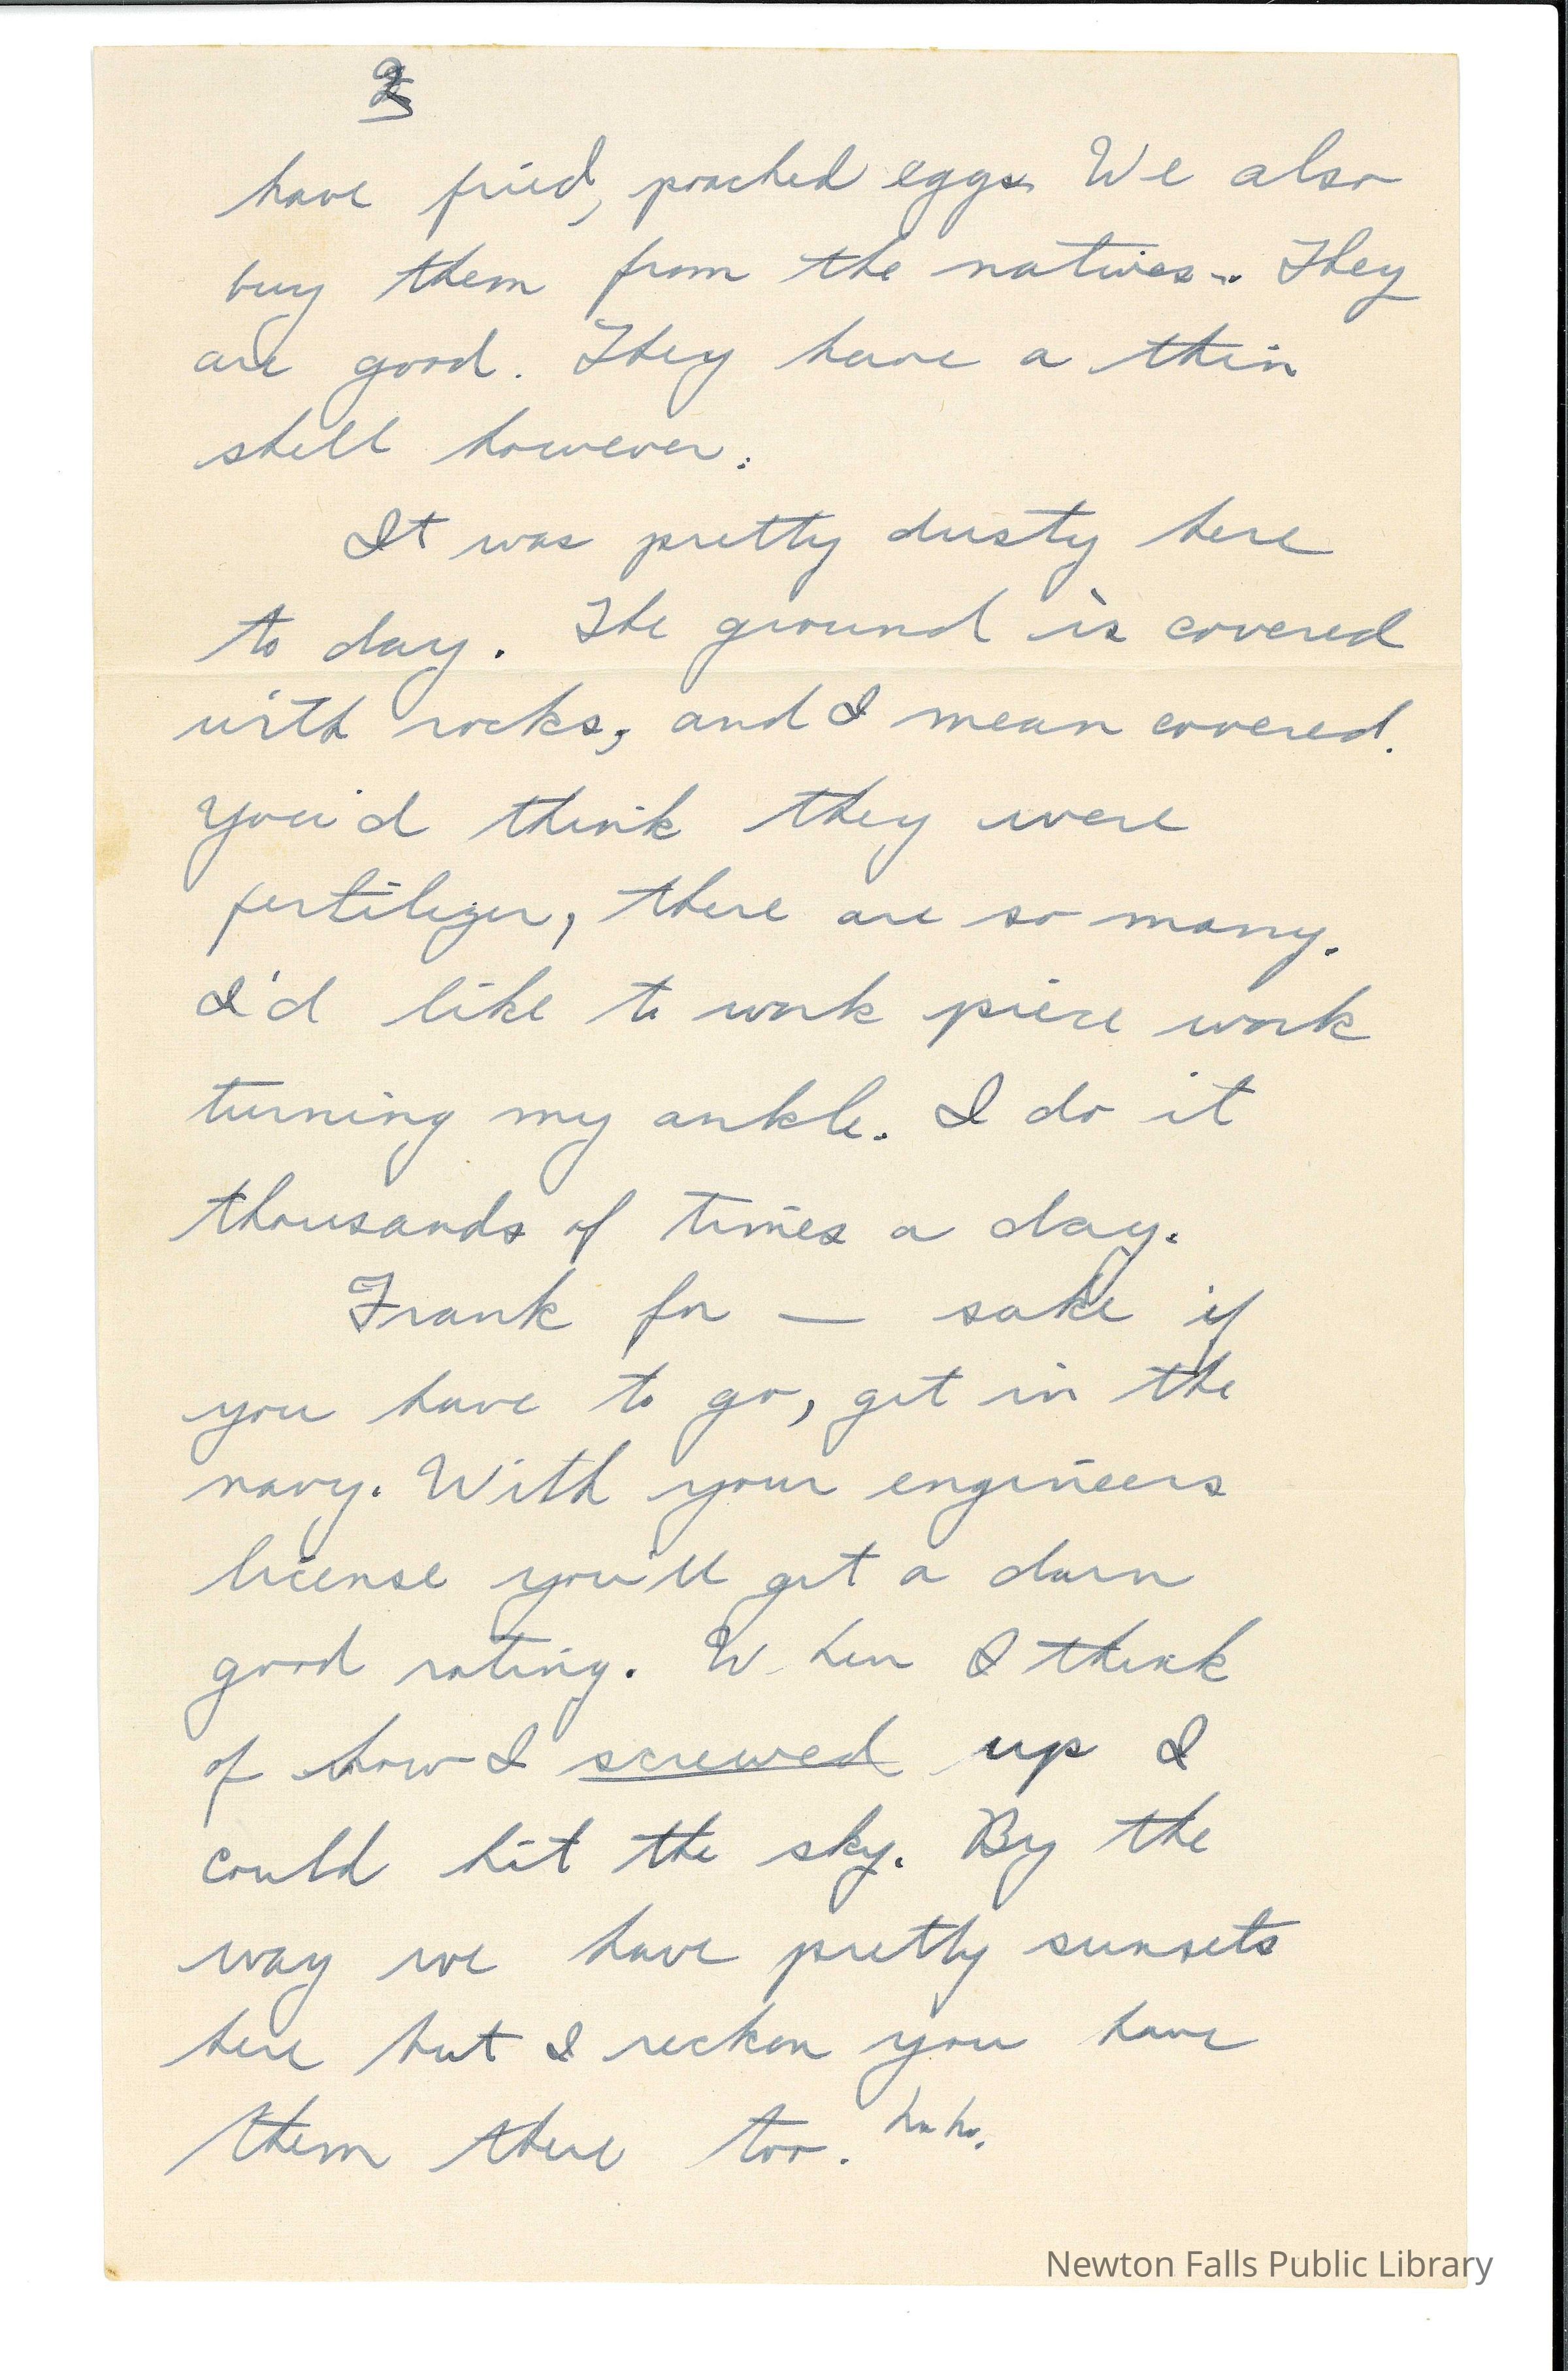 have fried, poached eggs. We also
buy them from the natives. They
are good. They have a thin
shell however.
It was pretty dusty here
to day. The ground is covered
with rocks, and I mean covered.
You'd think they were
fertilizer, there are so many.
I'd like to work piece work
turning my ankle. I do it
thousands of times a day.
Frank for — sake if
you have to go, get in the
navy. With your engineers
license you'll get a darn
good rating. When I think
of how I screwed up I
could hit the sky. By the
way we have pretty sunsets
here but I reckon you have
them there too. ha ha.
Newton Falls Public Library